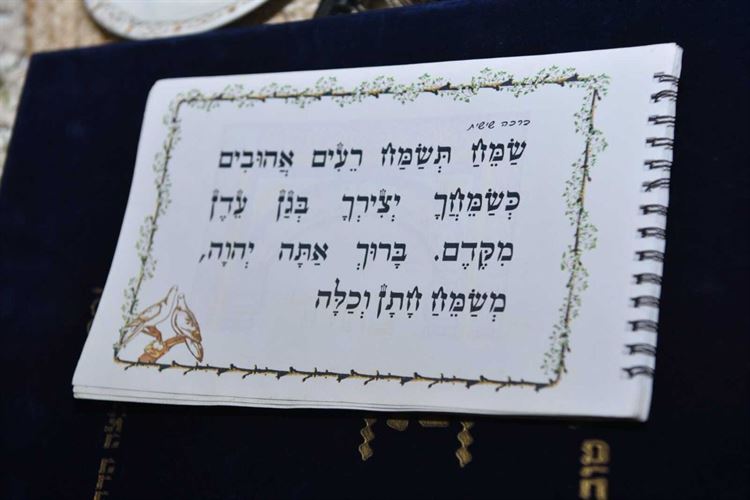 ברכה שישית
שַׂמֵּחַ תְּשַׂמַּח רֵעִים אֲהוּבִים
כְּשַׂמֵּחֲךָ יְצִירְךָ בְּגַן עֵדֶן
מִקֶּדֶם. בָּרוּךְ אַתָּה יְהוָה,
מְשַׂמֵּחַ חָתָן וְכַלָּה